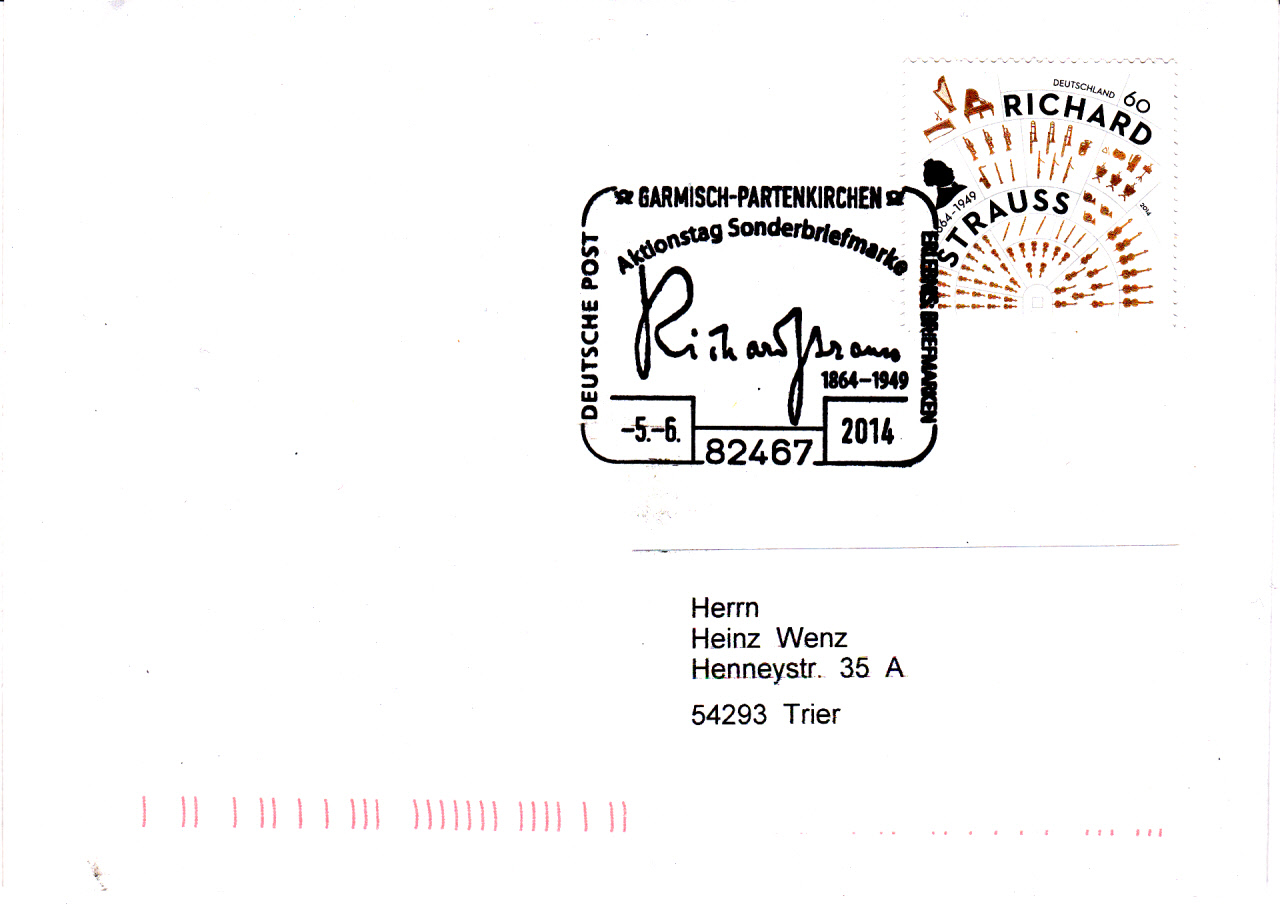 DEUTSCHLAND 60
RICHARD
STRAUSS
2014
GARMISCH-PARTENKIRCHEN
Aktionstag Sonderbriefmarke
DEUTSCHE POST
ERLEBNIS: BRIEFMARKEN
Richard Strauss
1864–1949
–5.–6.
2014
82467
Herrn
Heinz Wenz
Henneystr. 35 A
54293 Trier